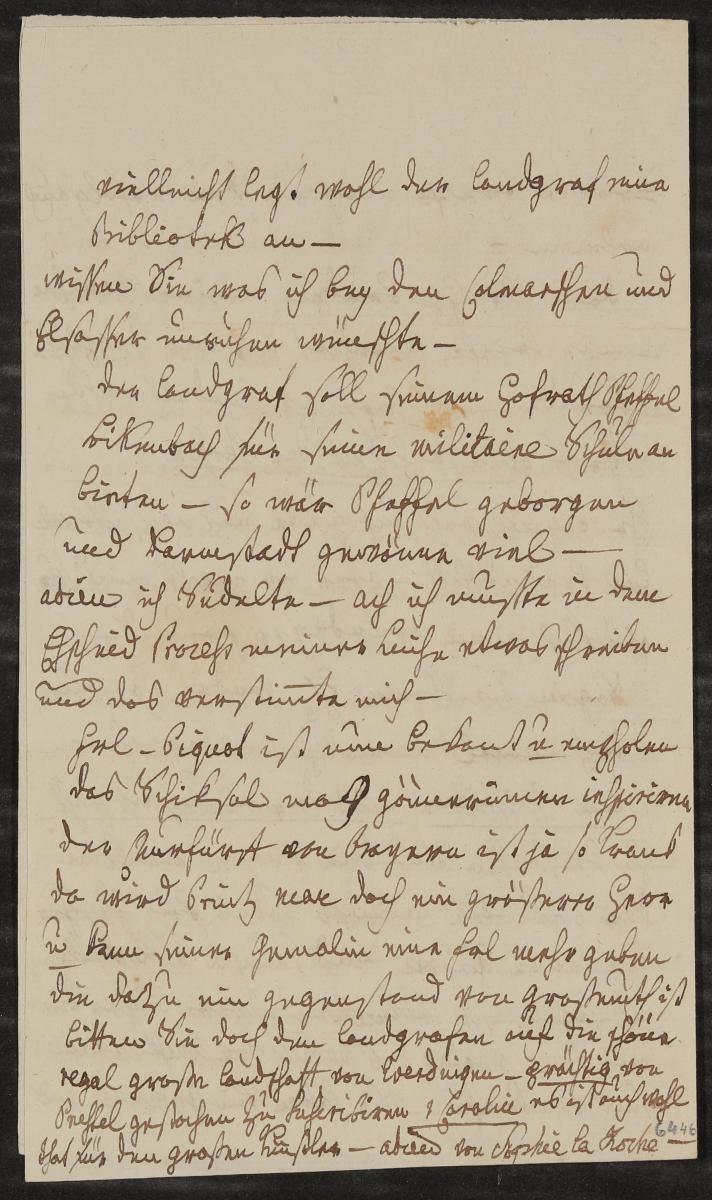 vielleicht legt wohl der Landgraf eine
Bibliotek an —
wissen Sie was ich bey den Colmarschen und
Elsasser unruhen wünschte —
der Landgraf soll seinem Hofrath Pfeffel
Bikenbach für seine militaire Schule an
bieten — so wär Pfeffel geborgen
und Darmstadt gewönne viel —
adieu ich Sudelte — ach ich musste in dem
Prozess meiner etwas schreiben
und das verstimte mich —
Frl — Piquot ist nun bekant u empholen
das Schiksal mag gönnerinnen inspiriren
der Kurfürst von bayern ist ja so krank
da wird Printz max doch ein größerer Herr
u kann seiner Gemalin eine Frl mehr geben
die dazu ein gegenstand von Grosmuth ist
bitten Sie doch den Landgrafen auf die schöne
regal große Landschaft von — prächtig von
gestochen zu Subscribiren Caroline es ist auch wohl
that für den großen Künstler — adieu von Sophie la Roche —
6446